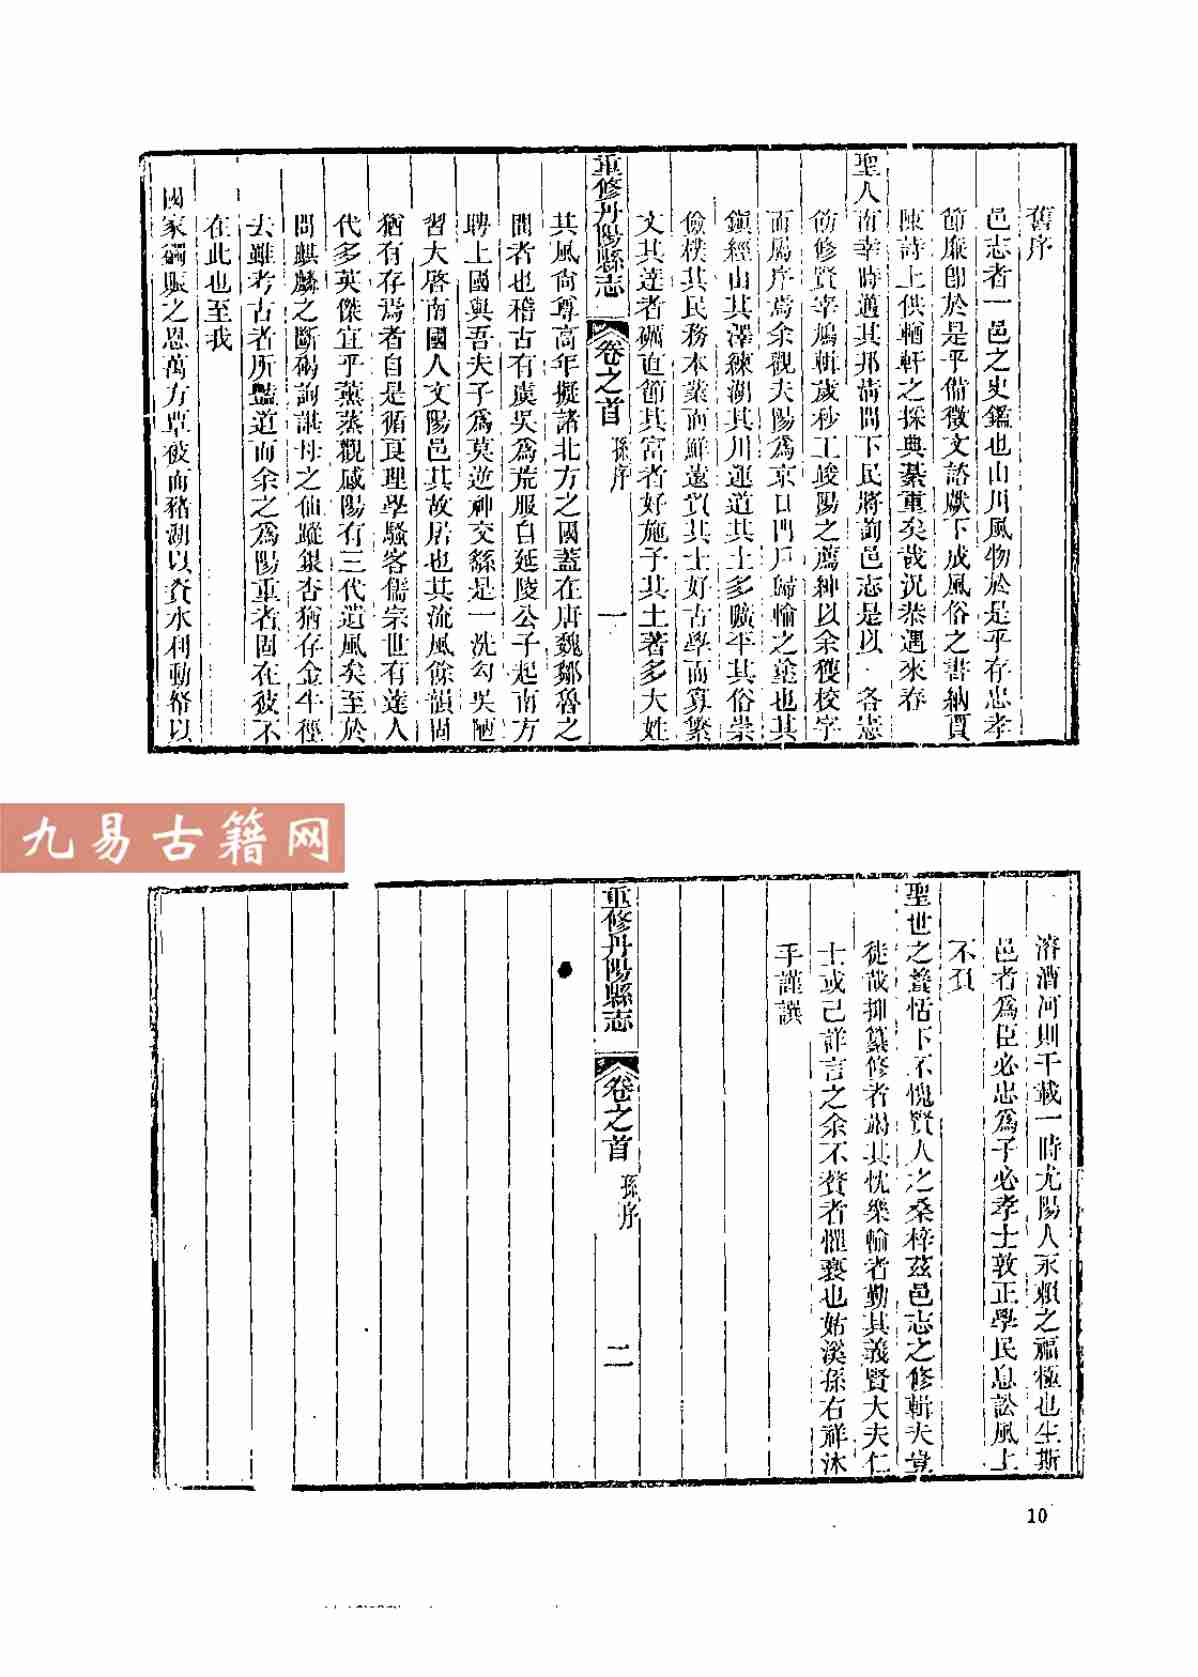 舊序
邑志者一邑之史鑑也山川風物於是乎存忠孝
節廉卽於是乎備徵文諮獻下成風俗之書納賈
陳詩上供輶軒之採典綦重矣哉況恭遇來春
聖人南幸時邁其邦蒭問下民將詢邑志是以 各憲
飭修賢宰鳩輯歲秒工竣陽之薦紳以余獲校字
而屬序焉余觀夫陽為京口門戶歸輸之塗也其
鎭經山其澤練湖其川運道其土多曠平其俗崇
儉樸其民務本業而鮮遠賈其士好古學而算繁
文其達者礪直節其富者好施予其土著多大姓
重修丹陽縣志 卷之首 孫序 一
其風尙尊高年擬諸北方之國蓋在唐魏鄒魯之
間者也稽古有虞吳為荒服自延陵公子起南方
聘上國與吾夫子為莫逆神交繇是一洗勾吳陋
習大啓南國人文陽邑其故居也其流風餘韻固
猶有存焉者自是循良理學騷客儒宗世有達人
代多英傑宜乎薰蒸觀感陽有三代遺風矣至於
問麒麟之斷碣詢諶母之仙蹤銀杏猶存金牛徑
去雖考古者所豔道而余之為陽重者固在彼不
在此也至我
國家蠲賑之恩萬方覃被而豬湖以資水利動帑以
濬漕河則千載一時尤陽人永賴之福極也生斯
邑者為臣必忠為子必孝士敦正學民息訟風上
不負
聖世之養恬下不愧賢人之桑梓茲邑志之修輯夫豈
徒哉抑纂修者竭其忱樂輸者勤其義賢大夫仁
士或已詳言之余不贅者懼褻也姑溪孫右祥沐
手謹譔
重修丹陽縣志 卷之首 孫序 二
九易古籍网
10